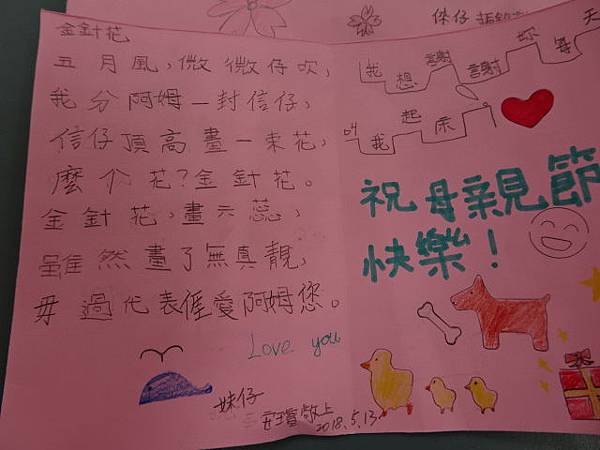 金針花
五月風,微微仔吹,
我分阿姆一封信仔,
信仔頂高畫一束花,
麼个花?金針花。
金針花,畫六蕊,
雖然畫了無真靚,
毋過代表𠊎愛阿姆您。
Love you
妹仔
敬上
2018.5.13
我想謝謝妳每天
叫我起床
祝母親節
快樂!